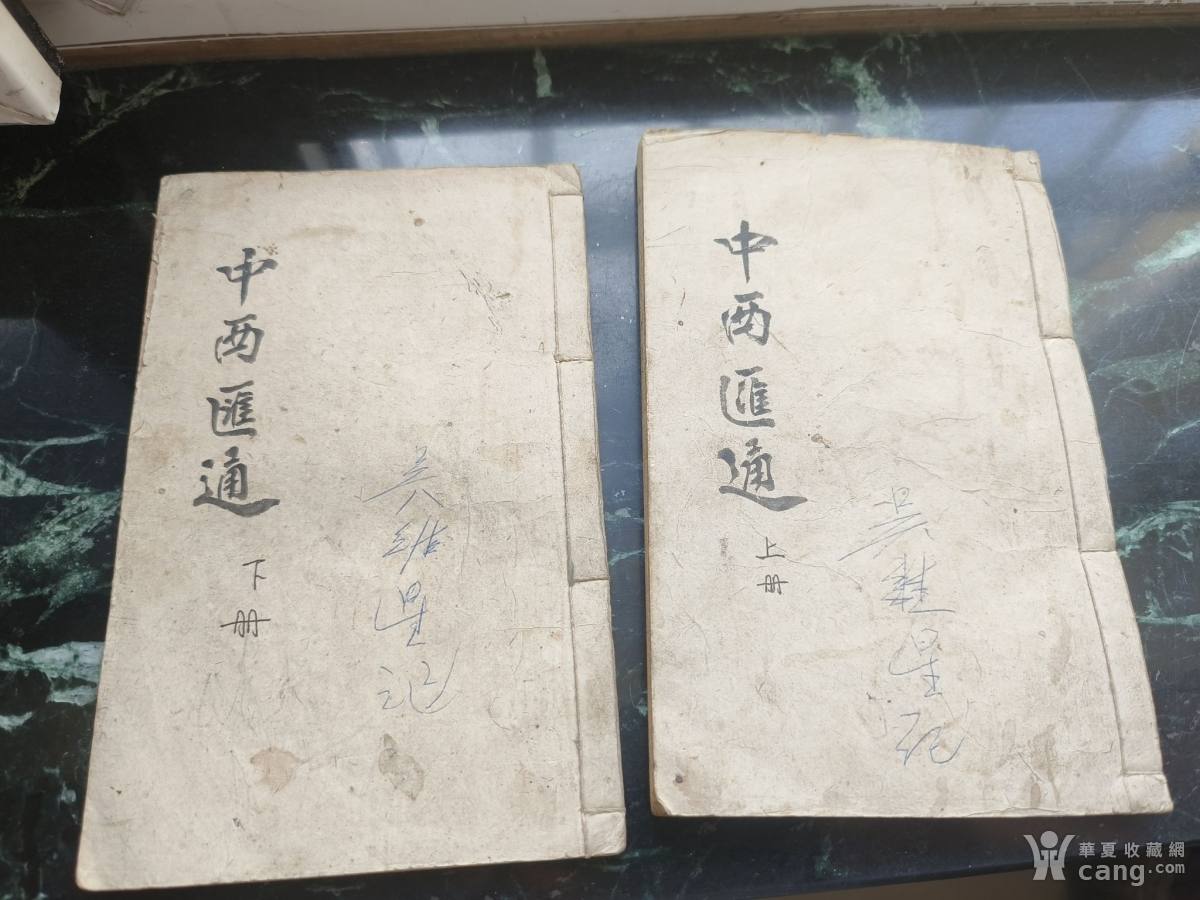 中西匯通
上册
吴星记
中西匯通
下册
吴星记
華夏收藏網
cang.com